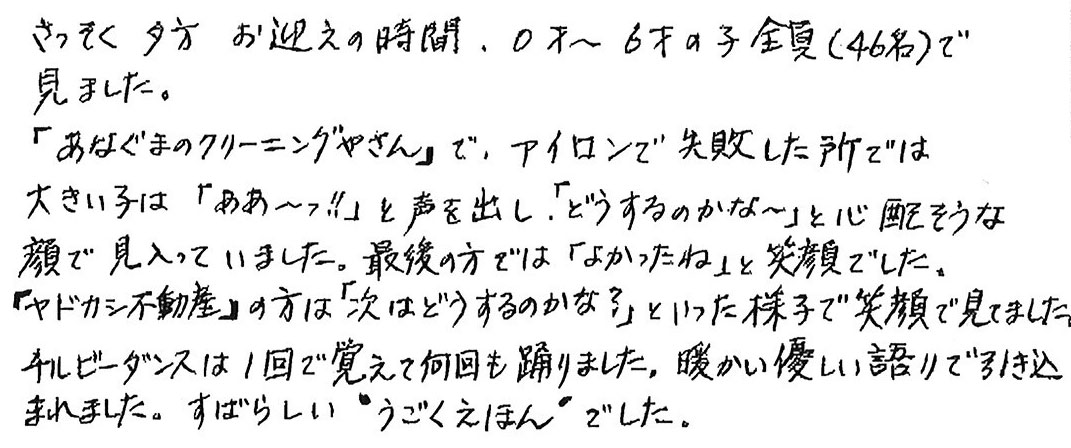 さっそく 夕方 お迎えの時間、0才〜6才の子全員(46名)で
見ました。
「あなぐまのクリーニングやさん」で、アイロンで失敗した所では
大きい子は「ああ〜っ!!」と声を出し、「どうするのかな〜」と心配そうな
顔で見入っていました。最後の方では「よかったね」と笑顔でした。
『ヤドカシ不動産』の方は「次はどうするのかな?」といった様子で笑顔で見てました。
チルビーダンスは1回で覚えて何回も踊りました。暖かい優しい語りで引き込
まれました。すばらしい “うごくえほん” でした。